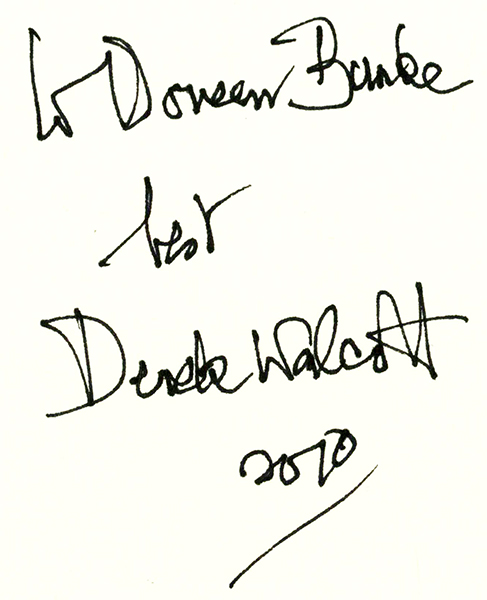 to Doreen Burke
best
Derek Walcott
2010